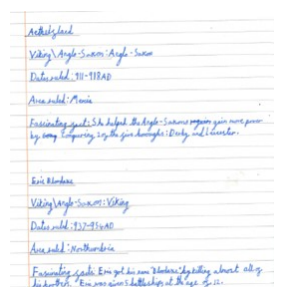 Aethelflaed
Viking\Anglo-Saxon: Anglo-Saxon
Dates ruled: 911-918AD
Area ruled: Mercia
Fascinating fact: She helped the Anglo-Saxons regain gain more power
by conquering the five boroughs: Derby and Leicester.
Eric Bloodaxe
Viking\Anglo-Saxon: Viking
Dates ruled: 937-954AD
Area ruled: Northumbria
Fascinating fact: Eric got his name "Bloodaxe" by killing almost all of
his brothers. Eric was given 5 battleships at the age of 12.